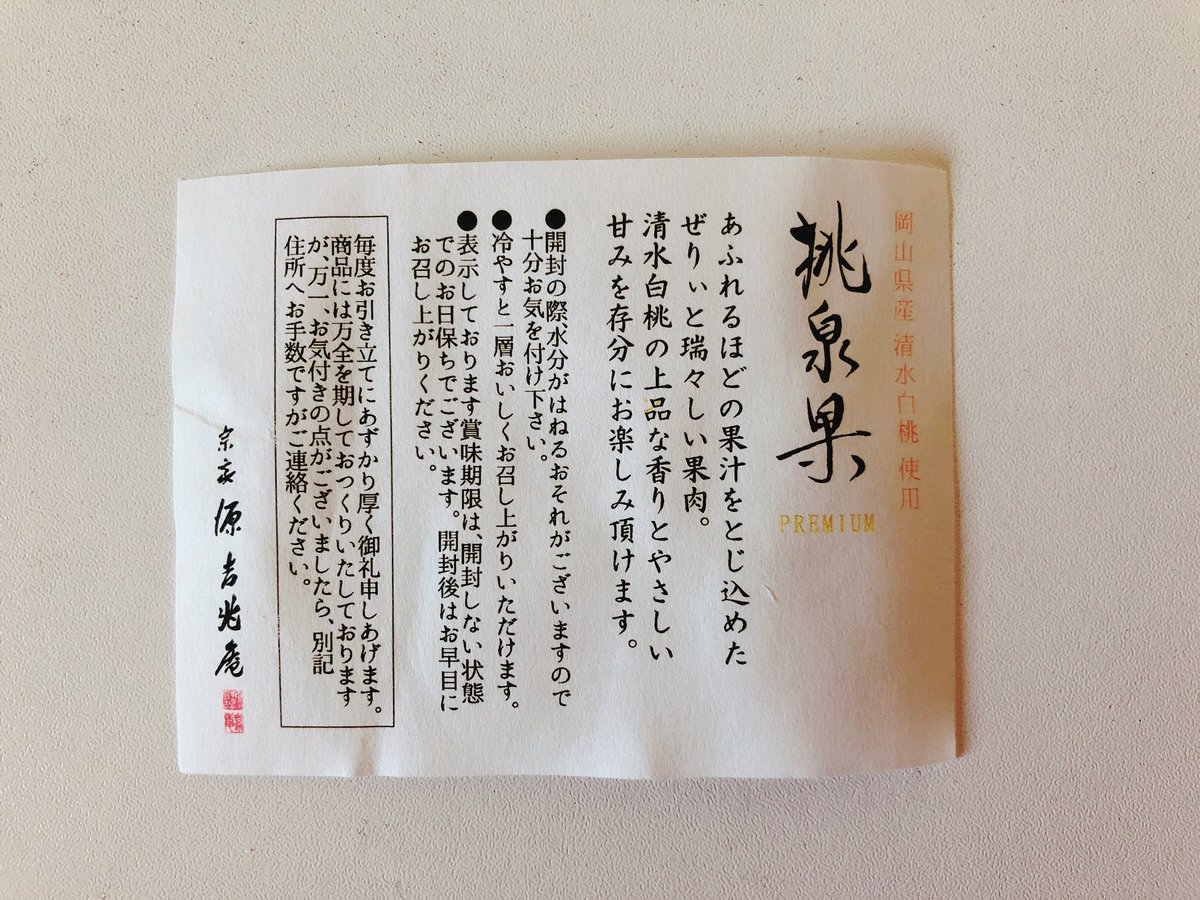 岡山県産 清水白桃 使用
桃泉果
PREMIUM
あふれるほどの果汁をとじ込めた
ぜりぃと瑞々しい果肉。
清水白桃の上品な香りとやさしい
甘みを存分にお楽しみ頂けます。
●開封の際、水分がはねるおそれがございますので
十分お気を付け下さい。
●冷やすと一層おいしくお召し上がりいただけます。
●表示しております賞味期限は、開封しない状態
でのお日保ちでございます。開封後はお早目に
お召し上がりください。
毎度お引き立てにあずかり厚く御礼申しあげます。
商品には万全を期しておつくりいたしております
が、万一、お気付きの点がございましたら、別記
住所へお手数ですがご連絡ください。
宗家 源吉兆庵